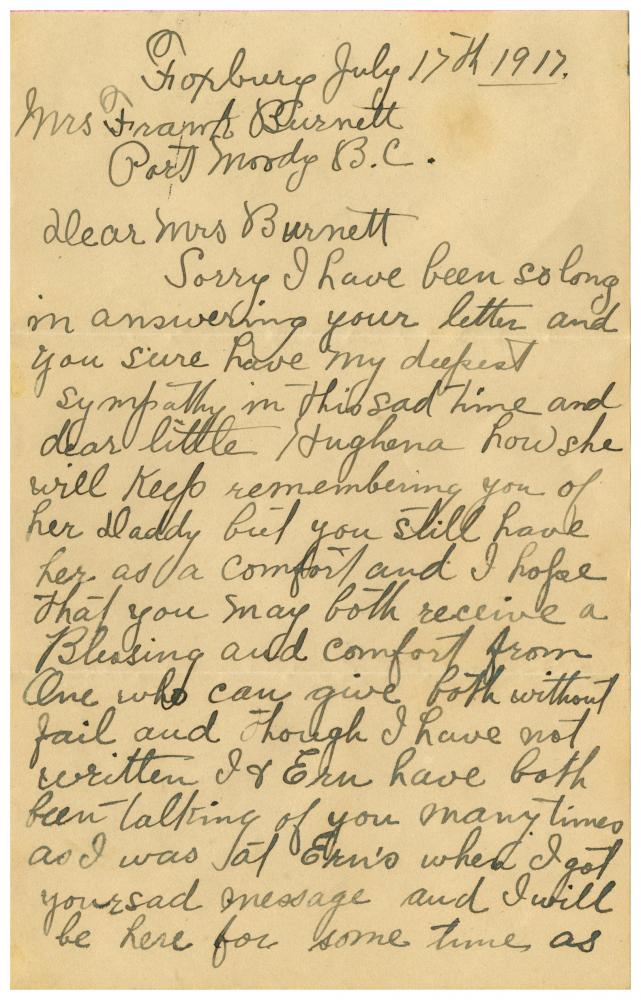 Foxbury July 17th 1917.
Mrs Frank Burnett
Port Moody B.C.
Dear Mrs Burnett
Sorry I have been so long
in answering your letter and
you sure have my deepest
sympathy in this sad time and
dear little Hughena how she
will keep remembering you of
her Daddy but you still have
her as a comfort and I hope
that you may both receive a
Blessing and comfort from
One who can give both without
fail and though I have not
written I & Ern have both
been talking of you many times
as I was at Ern's when I got
your sad message and I will
be here for some time as